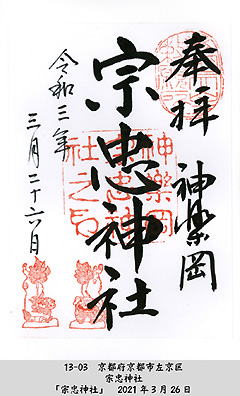 奉拝
神楽岡
宗忠神社
令和三年
三月二十六日
神樂岡
宗忠神
社之印
13-03 京都府京都市左京区
宗忠神社
「宗忠神社」 2021年3月26日